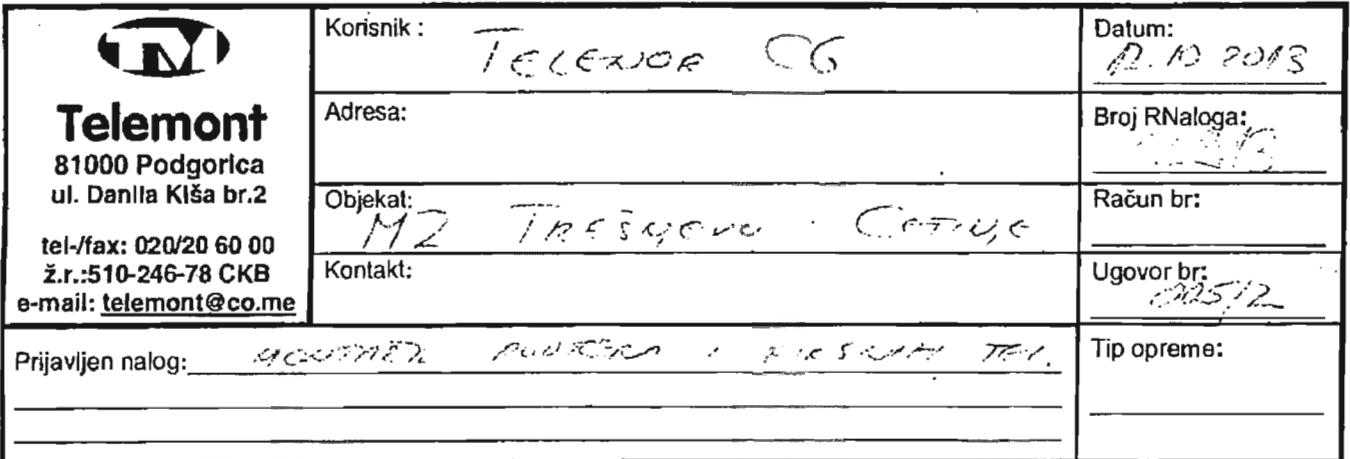 TM
Telemont
81000 Podgorica
ul. Danila Kiša br.2
tel-/fax: 020/20 60 00
ž.r.:510-246-78 CKB
e-mail: telemont@co.me
Korisnik : TELENOR CG
Adresa:
Objekat: MZ TREŠNJEVO - CETINJE
Kontakt:
Datum:
12.10 2013
Broj RNaloga:
Račun br:
Ugovor br:
Prijavljen nalog: TEL.
Tip opreme: